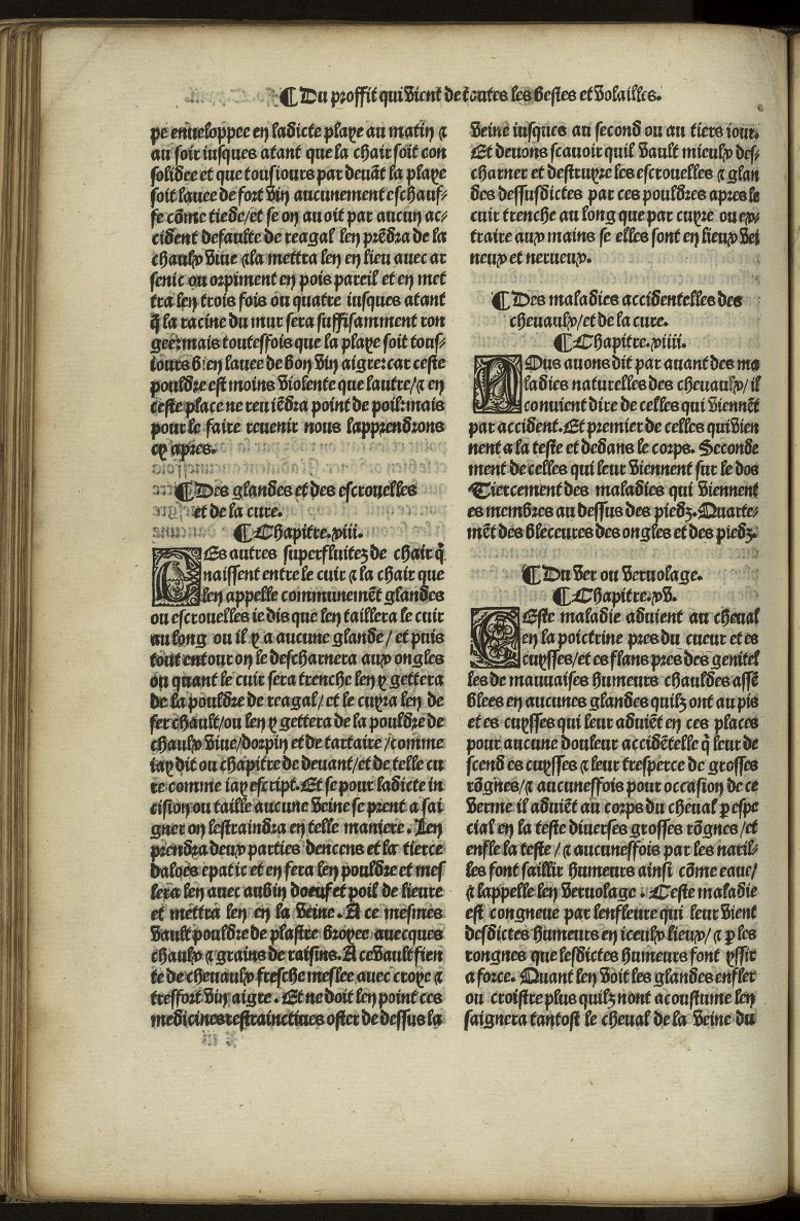 ¶ Du proffit qui vient de toutes les bestes et volailles.
pe enueloppee en ladicte playe au matin ⁊
au soir iusques atant que la chair soit con
solidee et que tousiours par deuãt la playe
soit lauee de fort vin aucunement eschauf⸗
fe cõme tiede/et se on auoit par aucun ac⸗
cident defaulte de reagal len prẽdra de la
chaulx viue ⁊ la mettra len en lieu auec ar
senic ou orpiment en pois pareil et en met
tra len trois fois ou quatre iusques atant
q̃ la racine du mur sera suffisamment ron
gee: mais toutesfois que la playe soit tous⸗
iours bien lauee de bon vin aigre: car ceste
pouldre est moins violente que lautre/⁊ en
ceste place ne reuiẽdra point de poil: mais
pour le faire reuenir nous lapprendrons
cy apres.
¶ Des glandes et des escrouelles
et de la cure.
¶ Chapitre.xiii.
Les autres superfluitez de chair q̃
naissent entre le cuir ⁊ la chair que
len appelle communemẽt glandes
ou escrouelles ie dis que len taillera le cuir
au long ou il y a aucune glande/ et puis
tout entour on le descharnera aux ongles
ou quant le cuir sera trenche len y gettera
de la pouldre de reagal/ et le cuyra len de
fer chault/ou len y gettera de la pouldre de
chaulx viue/dorpin et de tartaire/comme
iay dit ou chapitre de deuant/et de telle cu
re comme iay escript. Et se pour ladicte in
cision ou taille aucune veine se prent a sai
gner on lestraindra en telle maniere. Len
prendra deux parties dencens et la tierce
daloes epatic et en fera len pouldre et mes
lera len auec aubin doeuf et poil de lieure
et mettra len en la veine. A ce mesmes
vault pouldre de plastre broyee auecques
chaulx ⁊ grains de raisins. A ce vault fien
te de cheuaulx fresche meslee auec croye ⁊
tresfort vin aigre. Et ne doit len point ces
medicines restrainctiues oster de dessus la
veine iusques au second ou au tiers iour.
Et deuons scauoir quil vault mieulx des⸗
charner et destruyre les escrouelles ⁊ glan
des dessusdictes par ces pouldres apres le
cuir trenche au long que par cuyre ou ex⸗
traire aux mains se elles sont en lieux vei
neux et nerueux.
¶ Des maladies accidentelles des
cheuaulx/et de la cure.
¶ Chapitre.xiiii.
Nous auons dit par auant des ma
ladies naturelles des cheuaulx/il
conuient dire de celles qui viennẽt
par accident. Et premier de celles qui vien
nent a la teste et dedans le corps. Seconde
ment de celles qui leur viennent sur le dos
Tiercement des maladies qui viennent
es membres au dessus des piedz. Quarte⸗
mẽt des bleceures des ongles et des piedz.
¶ Du ver ou veruolage.
¶ Chapitre.xv.
Ceste maladie aduient au cheual
en la poictrine pres du cueur et es
cuysses/et es flans pres des genitel
les de mauuaises humeurs chauldes assẽ
blees en aucunes glandes quilz ont au pis
et es cuysses qui leur aduiẽt en ces places
pour aucune douleur accidẽtelle q̃ leur de
scend es cuysses ⁊ leur tresperce de grosses
rõgnes/⁊ aucunesfois pour occasion de ce
verme il aduiẽt au corps du cheual p espe
cial en la teste diuerses grosses rõgnes/et
enfle la teste/⁊ aucunesfois par les naril⸗
les font saillir humeurs ainsi cõme eaue/
⁊ lappelle len veruolage. Ceste maladie
est congneue par lenfleure qui leur vient
desdictes humeurs en iceulx lieux/⁊ p les
rongnes que lesdictes humeurs font yssir
a force. Quant len voit les glandes enfler
ou croistre plus quilz nont acoustume len
saignera tantost le cheual de la veine du